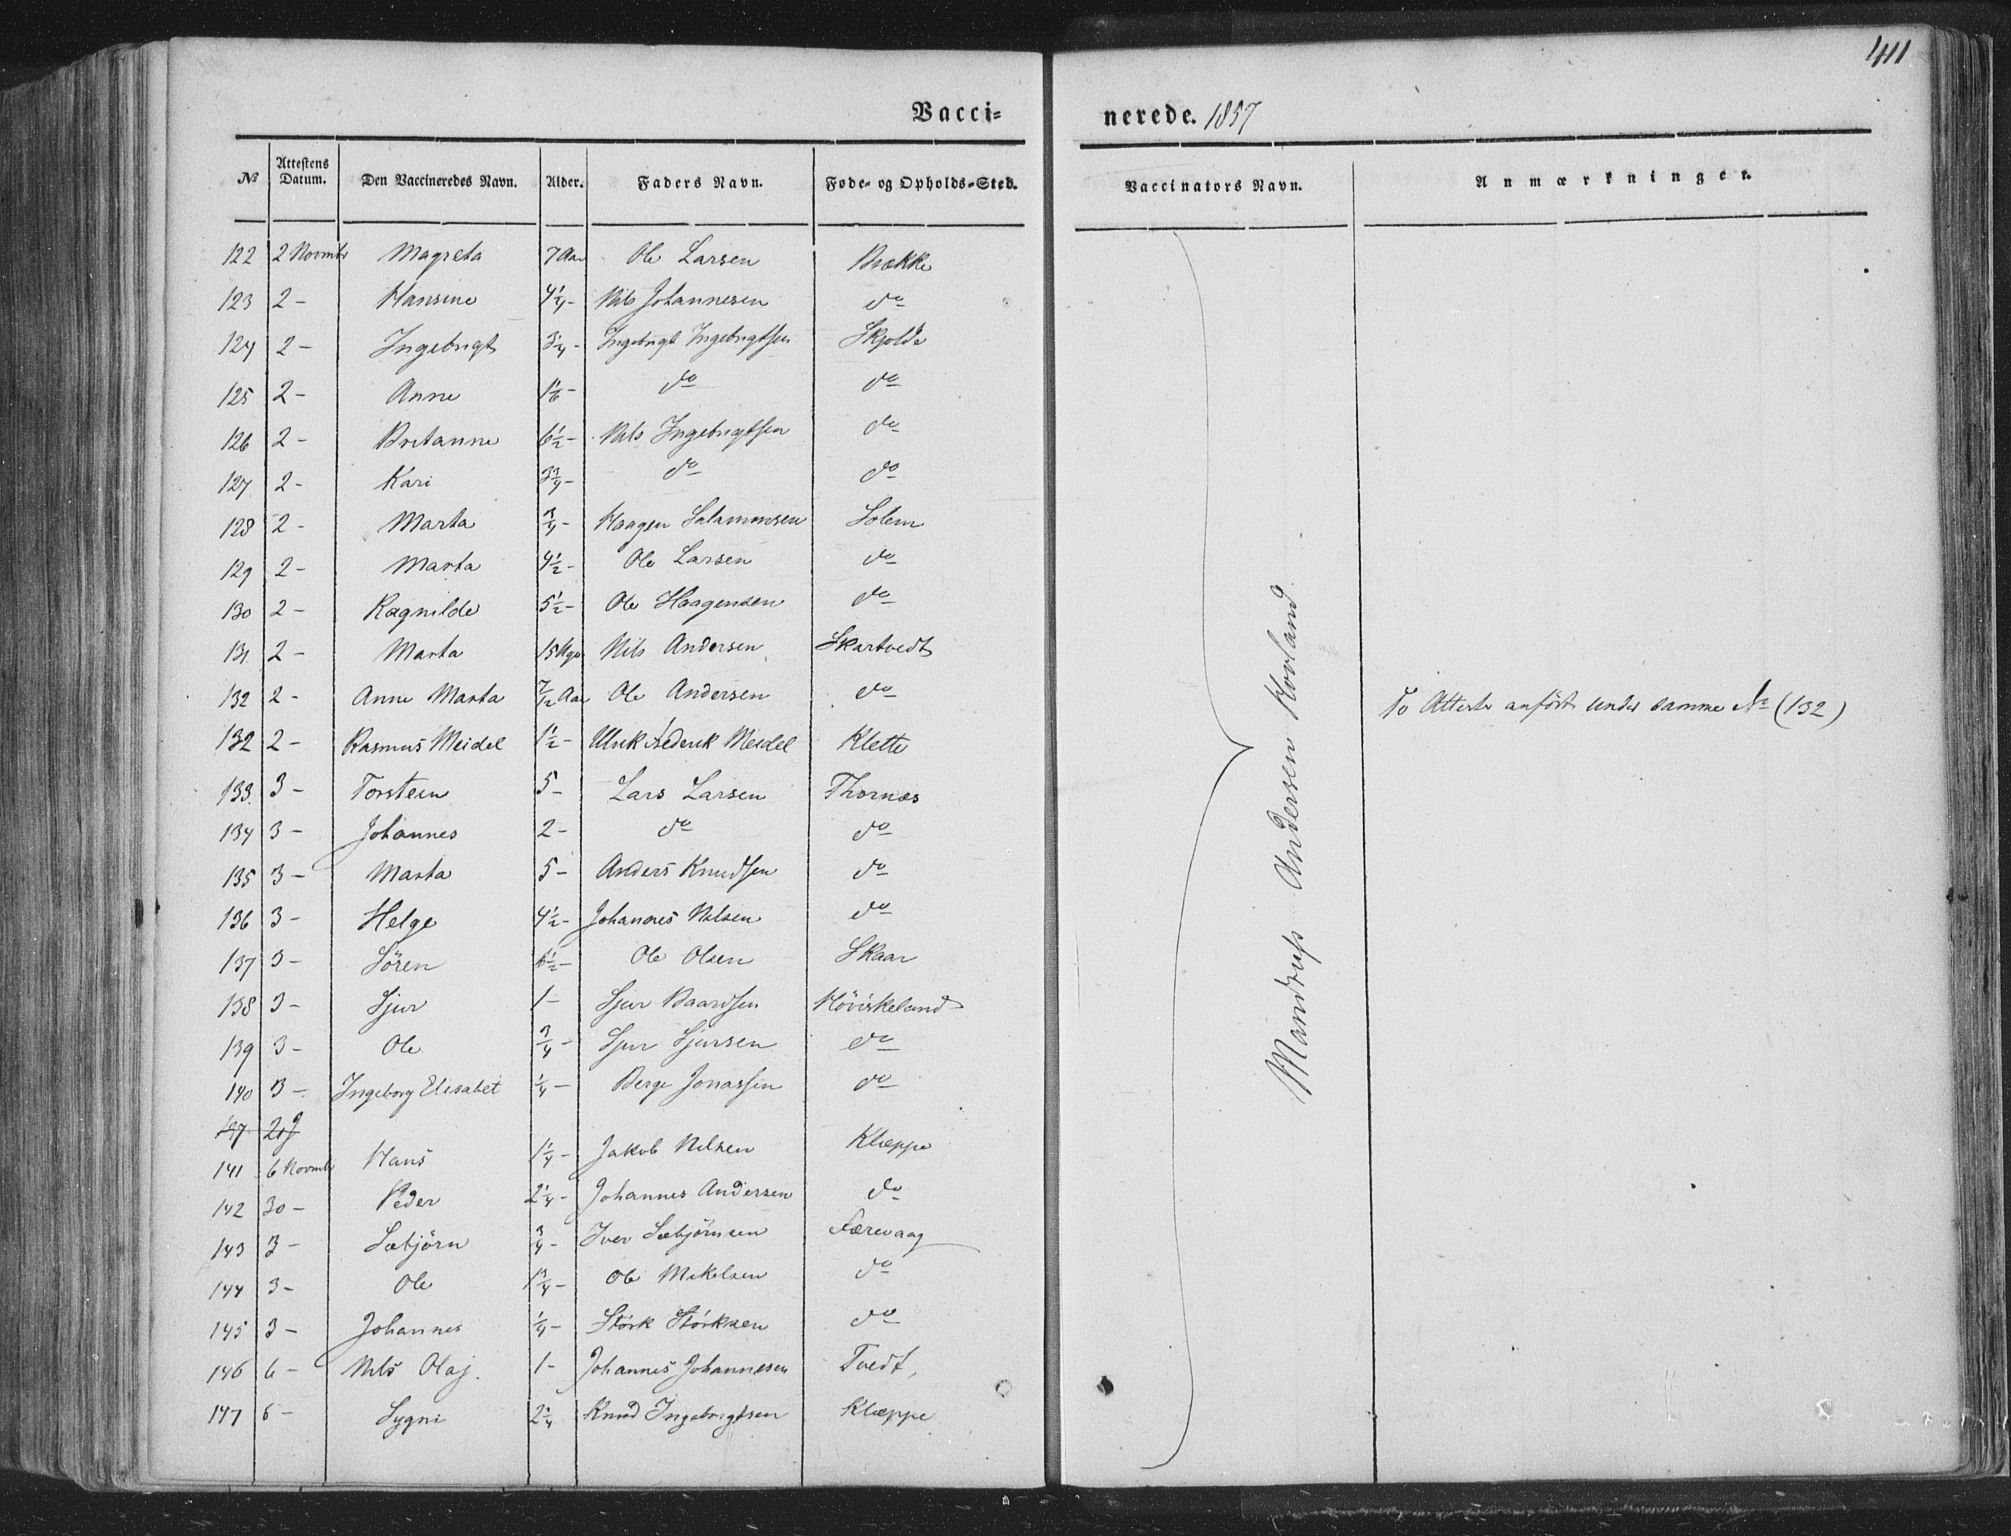 411
Vacci= nerede. 1857
No Attestens Datum. Den Vaccineredes Navn. Alder. Faders Navn. Føde- og Opholds-Sted. Vaccinators Navn. Anmærkninger.
122 2 Novmbr Magreta 7 Aar Ole Larsen Brække
123 2 - Hansine 4 1/4 - Nils Johannesen do
124 2 - Ingebrigt 3 1/4 - Ingebrigt Ingebrigtsen Skjolde
125 2 - Anne 1 1/6 - do do
126 2 - Britanne 6 1/2 - Nils Ingebrigtsen do
127 2 - Kari 3 3/4 - do do
128 2 - Marta 3/4 - Haagen Salamonsen Solem
129 2 - Marta 4 1/2 - Ole Larsen do
130 2 - Ragnilde 5 1/2 - Ole Haagensen do
131 2 - Marta 15 Uger Nils Andersen Skartvedt
132 2 - Anne Marta 7/12 Aar Ole Andersen do To Attester anført under samme No (132)
132 2 - Rasmus Meidel 1 1/2 - Ulrik Frederik Meidel Klette
133. 3 - Torstein 5 - Lars Larsen Thornæs
134 3 - Johannes 2 - do do
135 3 - Marta 5 - Anders Knudsen do
136 3 - Helge 4 1/2 - Johannes Nilsen do
137 3 - Sören 6 1/2 - Ole Olsen Skaar
138 3 - Sjur 1 - Sjur Baardsen Höviskeland
139 3 - Ole 3/4 - Sjur Sjursen do
140 3 - Ingeborg Elisabet 1/4 - Berge Jonassen do
141 6 Novmbr Hans 1 1/4 - Jakob Nilsen Kleppe
142 30 - Peder 2 1/4 - Johannes Andersen do
143 3 - Sæbjörn 3/4 - Iver Sæbjörnsen Færevaag
144 3 - Ole 1 3/4 - Ole Mikelsen do
145 3 - Johannes 1/4 - Störk Störksen do
146 6 - Nils Olaj. 1 - Johannes Johannesen Tvedt,
147 6 - Sygni 2 1/4 Knud Ingebrigtsen Kleppe
Mandrup Andersen Hovland